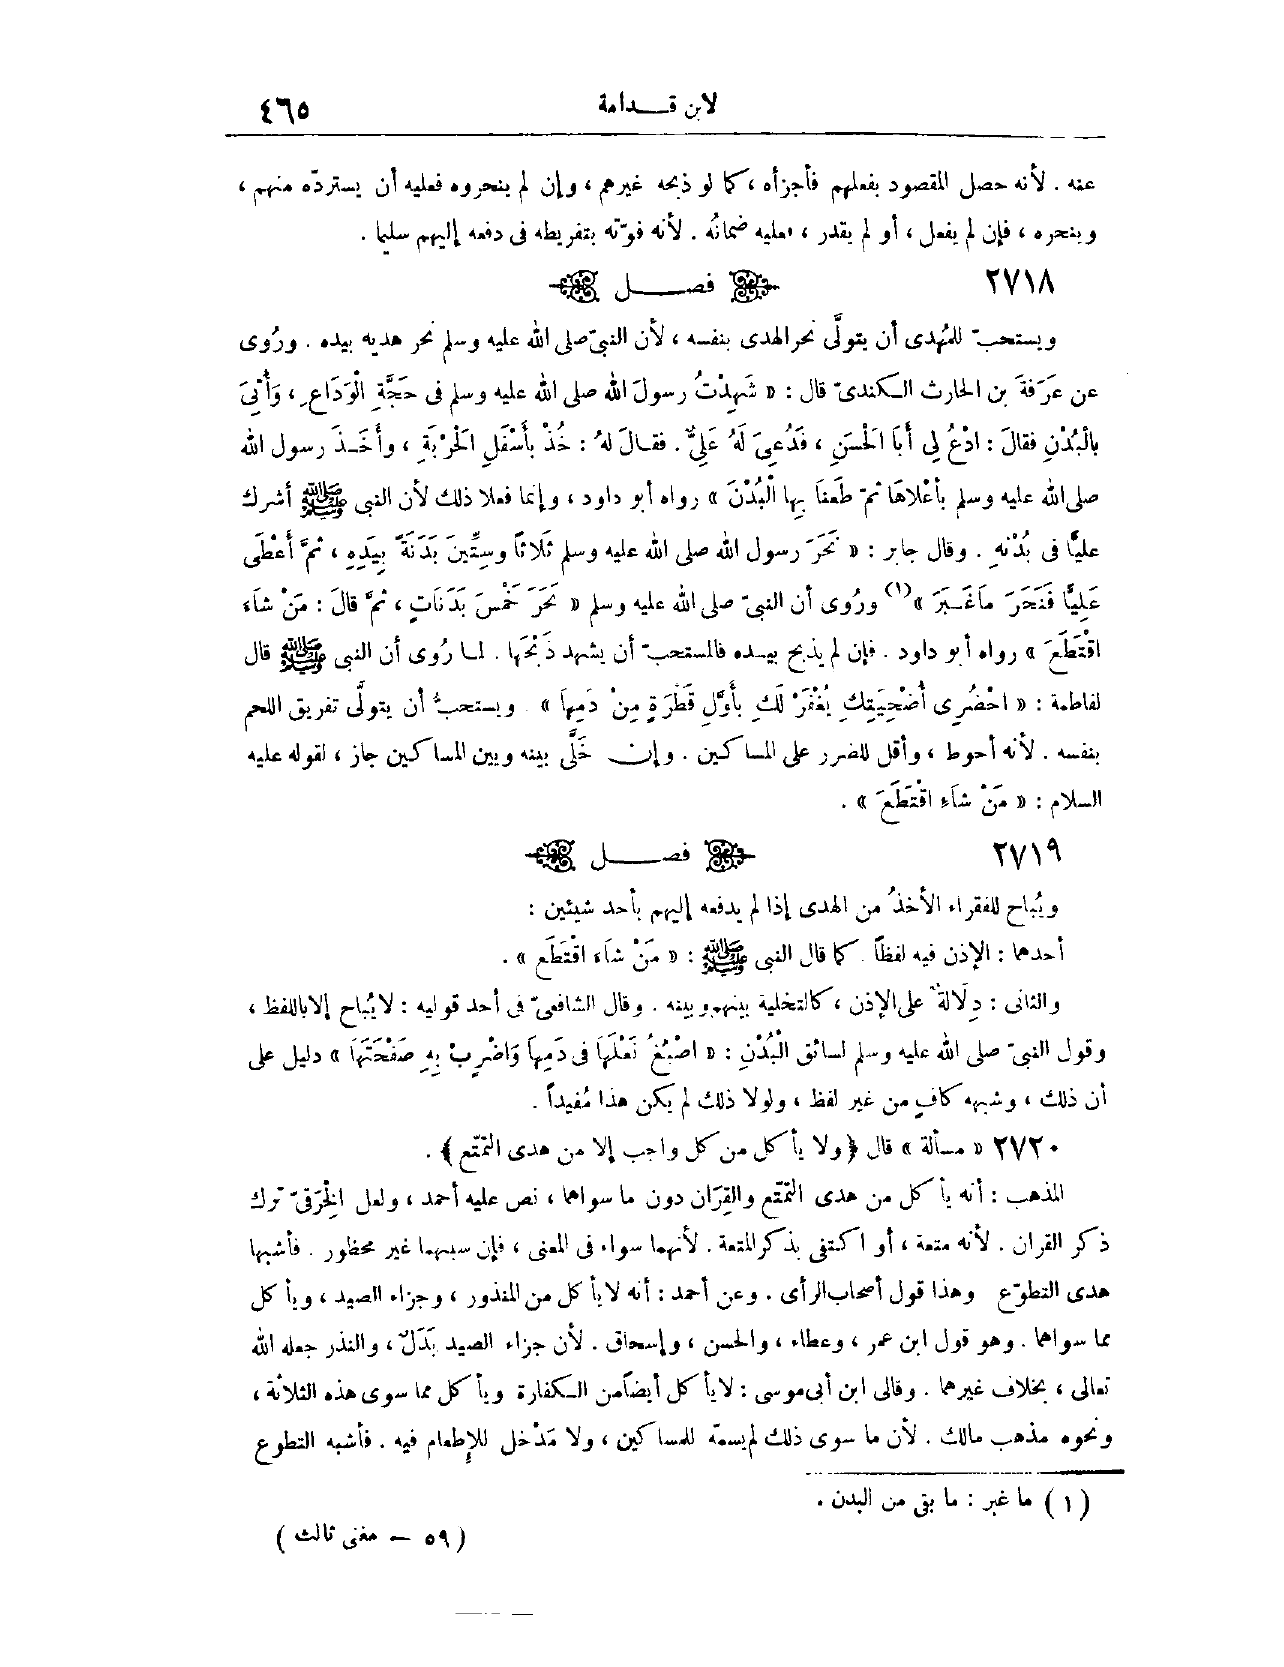 لابن قدامة ٤٦٥
عنه . لأنه حصل المقصود بفعلهم فأجزأه ، كما لو ذبحه غيرهم ، وإن لم ينحروه فعليه أن يستردّه منهم ،
وينحره ، فإن لم يفعل ، أو لم يقدر ، فعليه ضمانُه . لأنه فوّته بتفريطه فى دفعه إليهم سليما .
٢٧١٨ فصل
ويستحبّ للمُهدى أن يتولَّى نحر الهدى بنفسه ، لأن النبىّ صلى الله عليه وسلم نحر هديه بيده . ورُوى
عن عَرَفَةَ بن الحارث الكندىّ قال : « شَهِدْتُ رسولَ الله صلى الله عليه وسلم فى حَجَّةِ الْوَدَاعِ ، وَأُتِىَ
بالْبُدْنِ فقالَ : ادْعُ لِى أَبَا الْحَسَنِ ، فَدُعِىَ لَهُ عَلِىٌّ . فقالَ لهُ : خُذْ بأَسْفَلِ الْحَرْبَةِ ، وأَخَذَ رسول الله
صلى الله عليه وسلم بأَعْلاهَا ثمّ طَعَنَا بِها الْبُدْنَ » رواه أبو داود ، وإنما فعلا ذلك لأن النبى ﷺ أشرك
عليًّا فى بُدْنه . وقال جابر : « نَحَرَ رسول الله صلى الله عليه وسلم ثَلَاثاً وسِتِّينَ بَدَنَةً بِيَدِهِ ، ثمَّ أَعْطَى
عَلِيًّا فَنَحَرَ مَاغَبَرَ »(١) ورُوى أن النبىّ صلى الله عليه وسلم « نَحَرَ خَمْسَ بَدَنَاتٍ ، ثمَّ قالَ : مَنْ شَاءَ
اقْتَطَعَ » رواه أبو داود . فإن لم يذبح بيده فالمستحبّ أن يشهد ذَبْحَها . لما رُوى أن النبى ﷺ قال
لفاطمة : « احْضُرِى أُضْحِيَتِكِ يُغْفَرْ لَكِ بِأَوَّلِ قَطْرَةٍ مِنْ دَمِهاَ » . ويستحبُّ أن يتولَّى تفريق اللحم
بنفسه . لأنه أحوط ، وأقل للضرر على المساكين . وإن خَلَّى بينه وبين المساكين جاز ، لقوله عليه
السلام : « مَنْ شاَءَ اقْتَطَعَ » .
٢٧١٩ فصل
ويُباح للفقراء الأخذُ من الهدى إذا لم يدفعه إليهم بأحد شيئين :
أحدهما : الإذن فيه لفظاً . كما قال النبى ﷺ : « مَنْ شاَءَ اقْتَطَعَ » .
والثانى : دِلَالةٌ على الإذن ، كالتخلية بينهم وبينه . وقال الشافعىّ فى أحد قوليه : لا يُباح إلا باللفظ ،
وقول النبىّ صلى الله عليه وسلم لسائق الْبُدْنِ : « اصْبُغْ نَعْلَهَا فى دَمِهاَ وَاضْرِبْ بِهِ صَفْحَتَهَا » دليل على
أن ذلك ، وشبهه كافٍ من غير لفظ ، ولولا ذلك لم يكن هذا مُفيداً .
٢٧٢٠ « مسألة » قال ﴿ ولا يأكل من كل واجب إلا من هدى التمتّع ﴾ .
المذهب : أنه يأكل من هدى التمتّع والقِرَان دون ما سواهما ، نص عليه أحمد ، ولعل الْخِرَقىّ ترك
ذكر القران . لأنه متعة ، أو اكتفى بذكر المتعة . لأنهما سواء فى المعنى ، فإن سببهما غير محظور . فأشبها
هدى التطوّع وهذا قول أصحاب الرأى . وعن أحمد : أنه لا يأكل من المنذور ، وجزاء الصيد ، ويأكل
مما سواهما . وهو قول ابن عمر ، وعطاء ، والحسن ، وإسحاق . لأن جزاء الصيد بَدَلٌ ، والنذر جعله الله
تعالى ، بخلاف غيرهما . وقالى ابن أبى موسى : لا يأكل أيضاً من الكفارة ويأكل مما سوى هذه الثلاثة ،
ونحوه مذهب مالك . لأن ما سوى ذلك لم يسمّه للمساكين ، ولا مَدْخل للإطعام فيه . فأشبه التطوع
(١) ما غبر : ما بقى من البدن .
(٥٩ – مغنى ثالث)